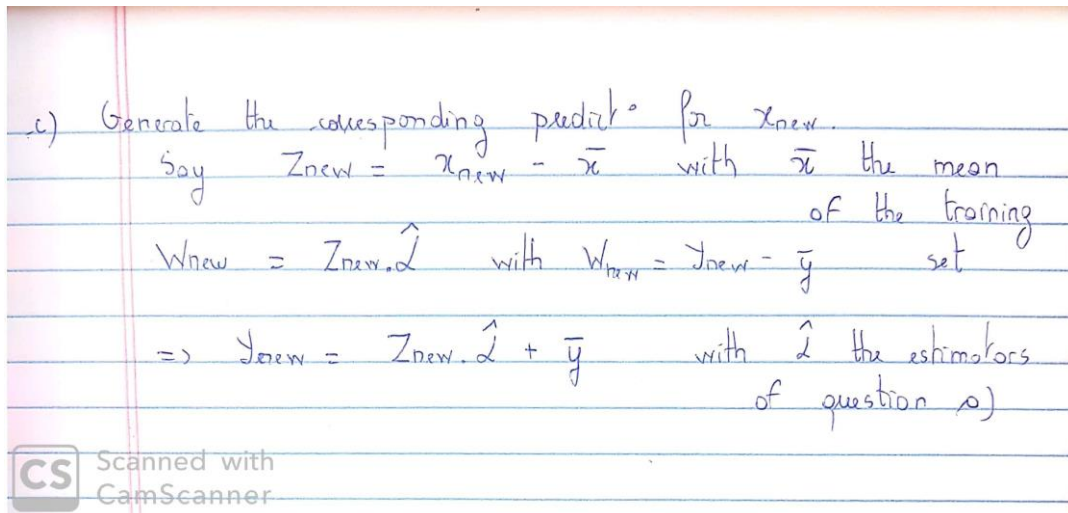 c) Generate the corresponding predict° for xnew.
Say Znew = xnew - x̄ with x̄ the mean
of the training
Wnew = Znew.α̂ with Wnew = ynew - ȳ set
=> ynew = Znew.α̂ + ȳ with α̂ the estimators
of question a)
CS Scanned with
CamScanner